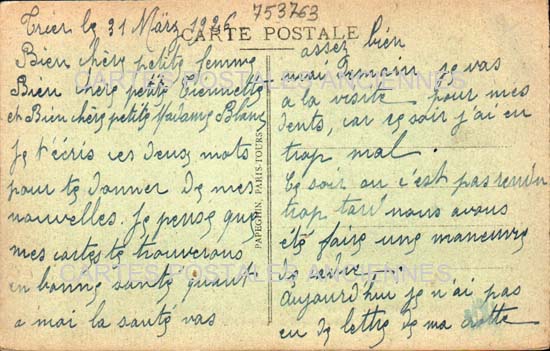 753763
CARTE POSTALE
Trier le 31 März 1926
Bien chère petite femme
Bien chère petite
et Bien chère petite Madame Blanc
Je t'écris ces deux mots
pour te donner de mes
nouvelles. Je pense que
mes cartes te trouverons
en bonne santé quant
a moi la santé vas
PAPEGHIN, PARIS-TOURS
assez bien
moi Demain je vas
a la visite pour mes
dents, car ce soir j'ai eu
trop mal.
Ce soir on c'est pas rendu
trop tard nous avons
été faire une maneuvre
de cadre...
Aujourd'hui je n'ai pas
eu de lettre de ma
CARTES POSTALES ANCIENNES
CARTES POSTALES ANCIENNES